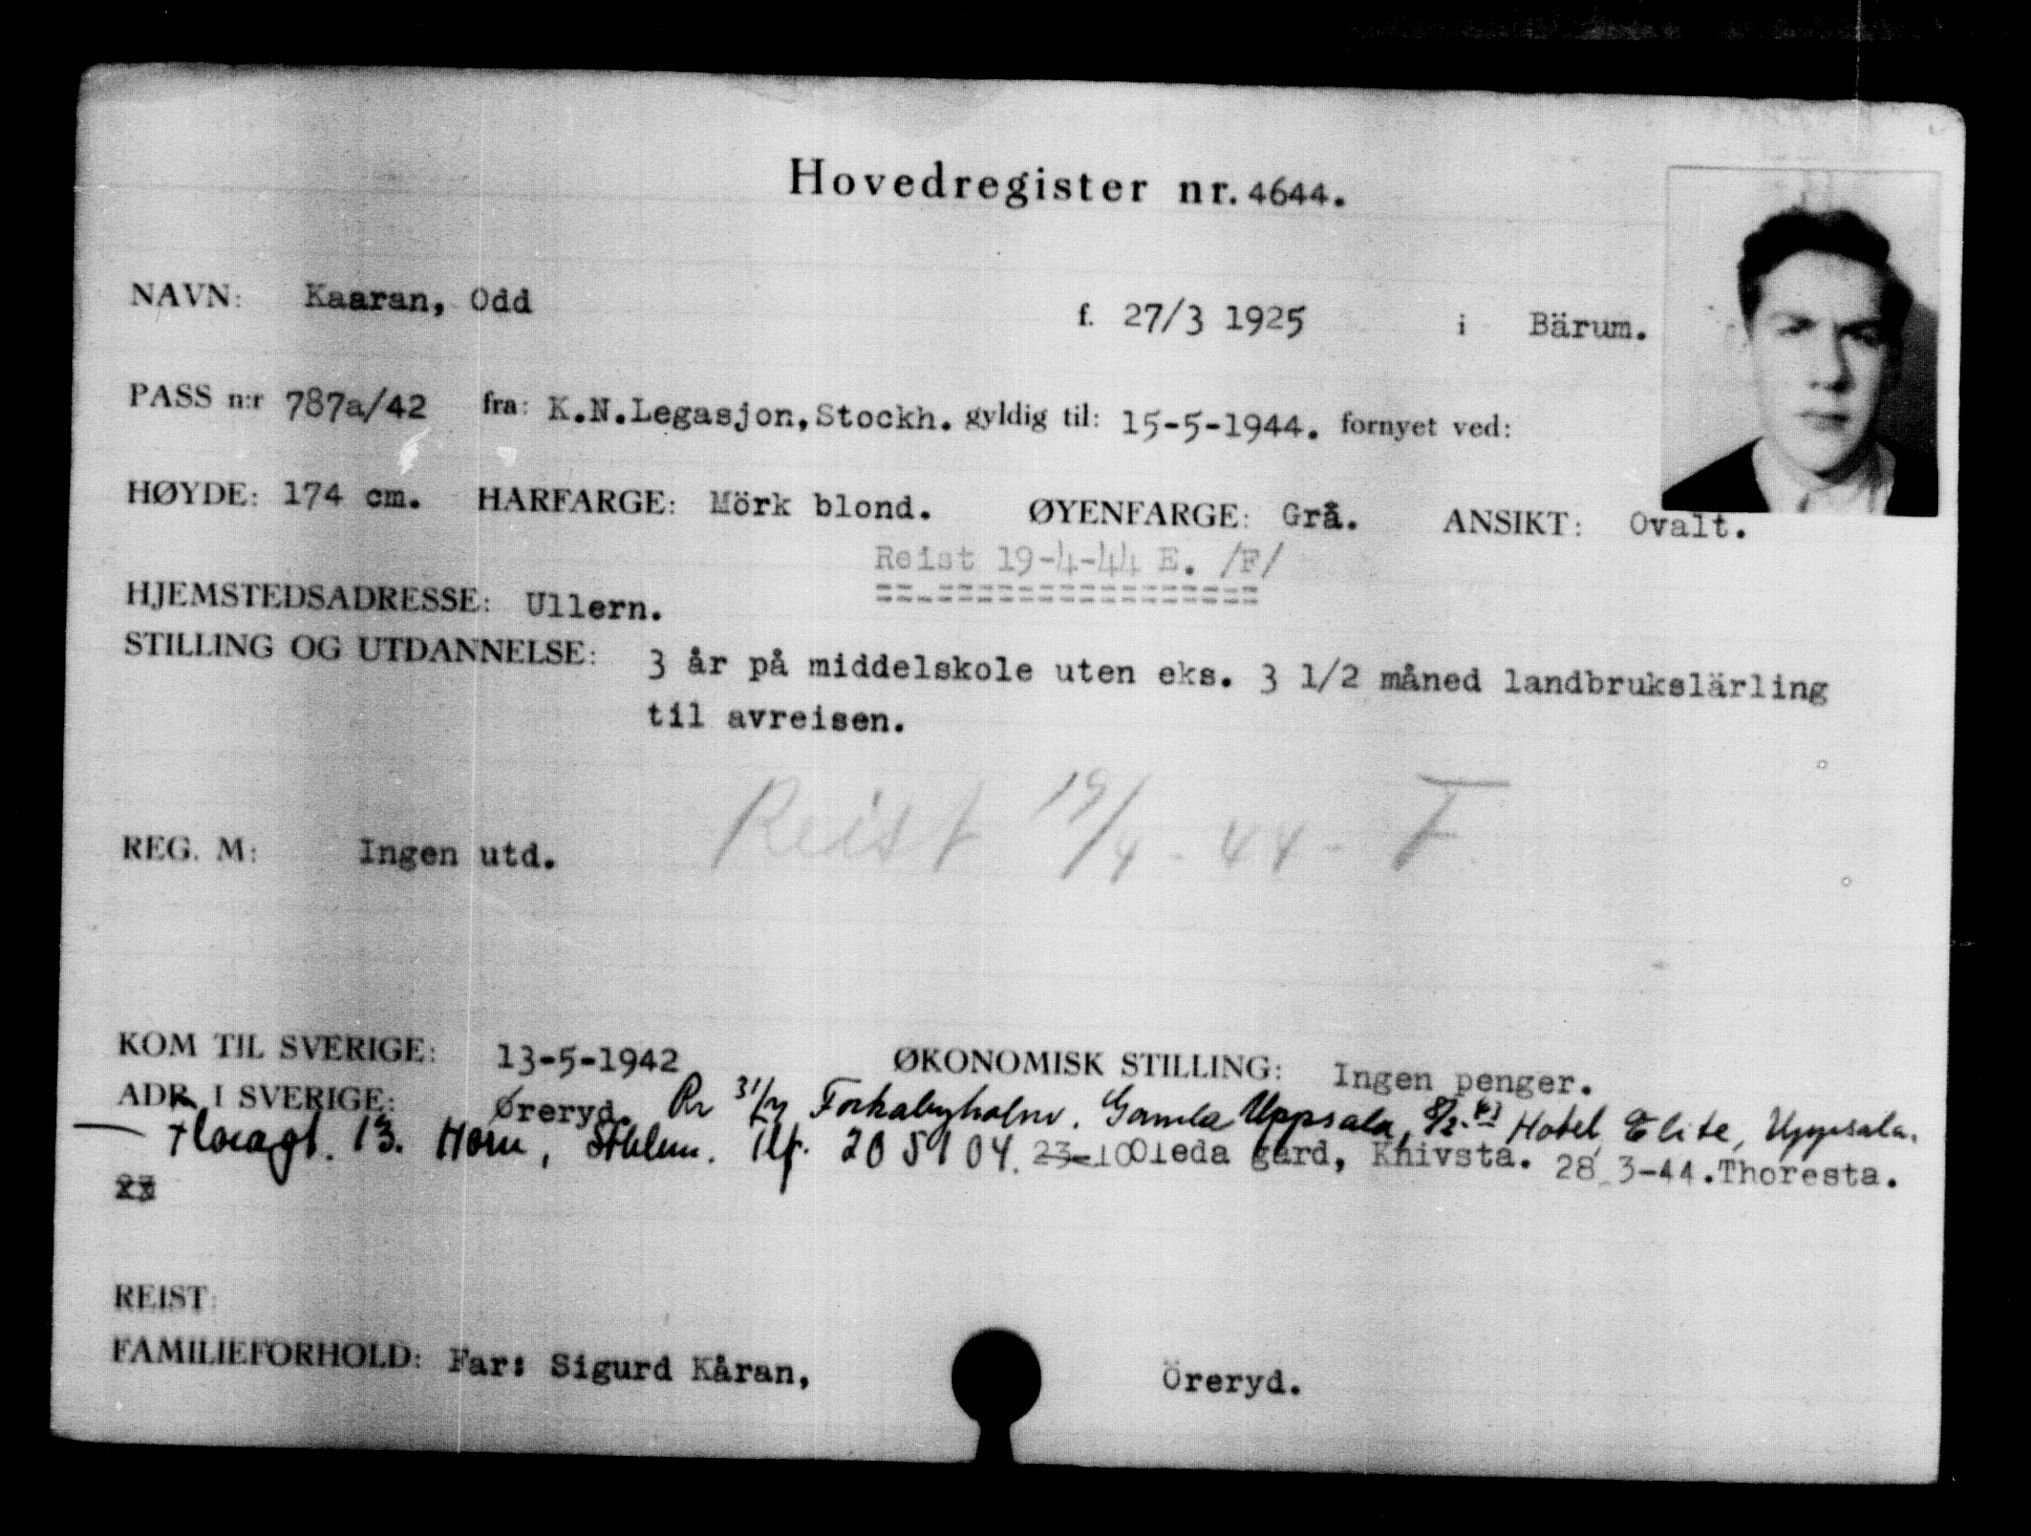 Hovedregister nr. 4644.
NAVN: Kaaran, Odd f. 27/3 1925 i Bärum.
PASS n:r 787a/42 fra: K.N.Legasjon, Stockh. gyldig til: 15-5-1944. fornyet ved:
HØYDE: 174 cm. HARFARGE: Mörk blond. ØYENFARGE: Grå. ANSIKT: Ovalt.
Reist 19-4-44 E. /F/
HJEMSTEDSADRESSE: Ullern.
STILLING OG UTDANNELSE: 3 år på middelskole uten eks. 3 1/2 måned landbrukslärling
til avreisen.
Reist 19/4-44- F
REG. M: Ingen utd.
KOM TIL SVERIGE: 13-5-1942 ØKONOMISK STILLING: Ingen penger.
ADR. I SVERIGE: Øreryd. Gamla Uppsala, 8/2-43 Hotel Elite, Uppsala.
13. Horn, Sthlm. Tlf. 205104. gård, Knivsta. 28 3-44. Thoresta.
REIST:
FAMILIEFORHOLD: Far: Sigurd Kåran, Öreryd.